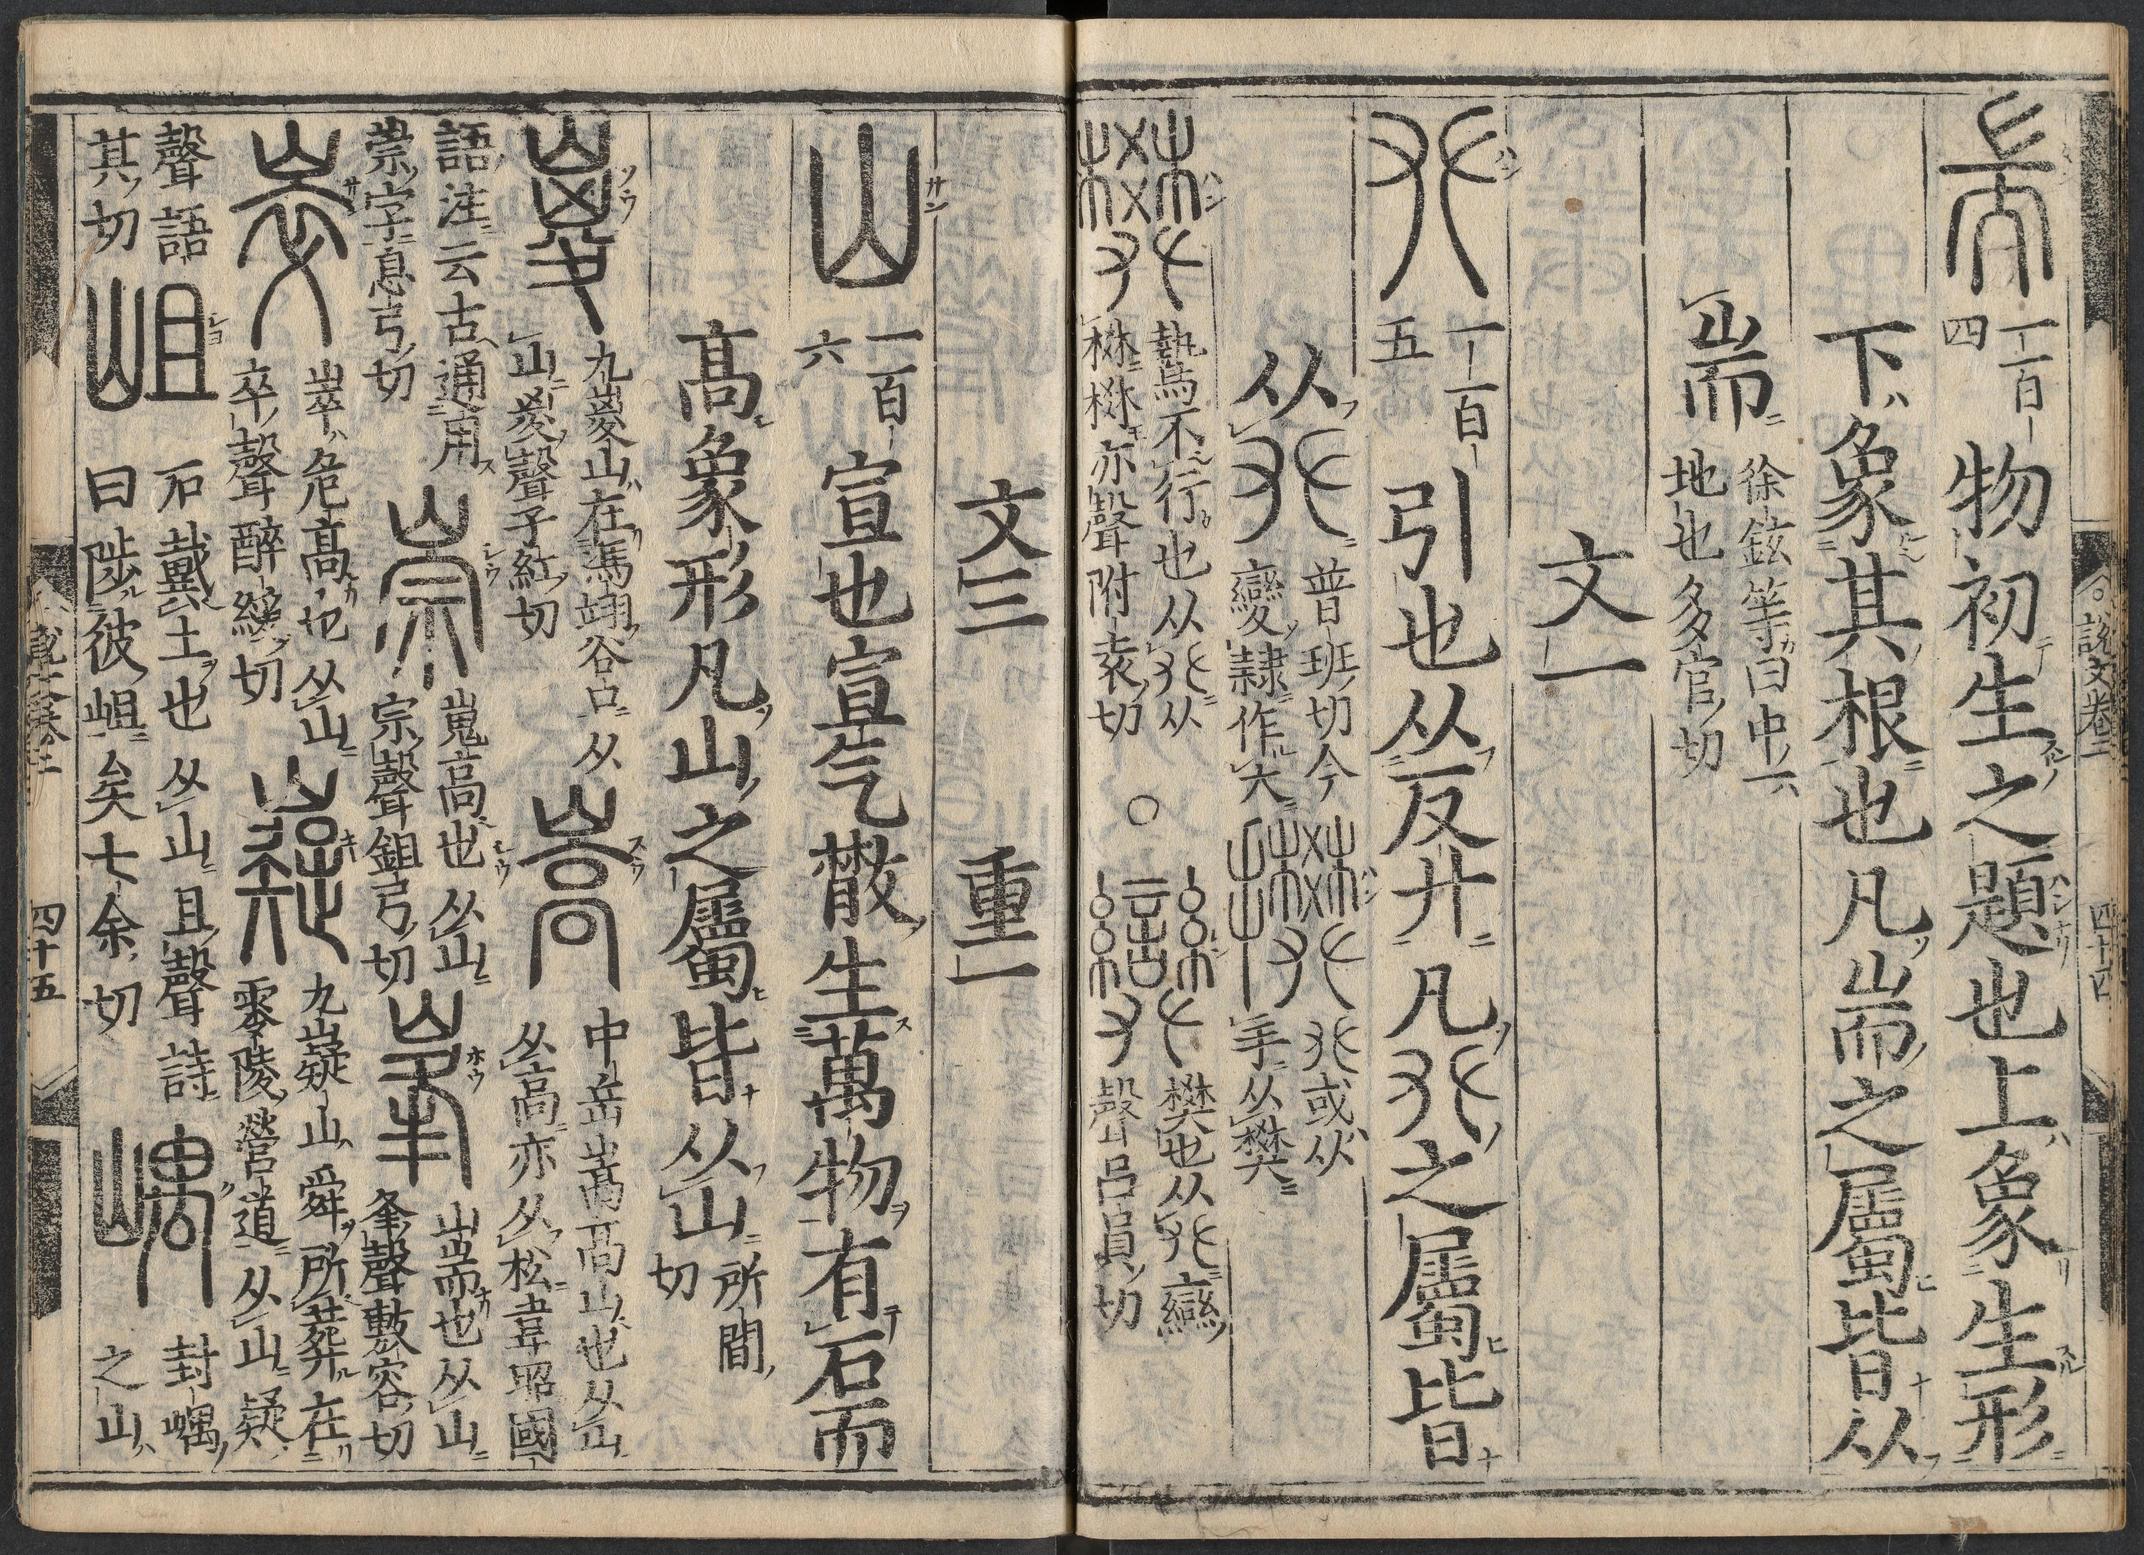 耑 一百四 物初生之題也上象生形
下象其根也凡耑之屬皆从
耑 徐鉉等曰中一地也多官切
文一
𠬜 一百五 引也从反廾凡𠬜之屬皆
从𠬜 普班切今變隷作大 𢱭 𠬜或从手从樊
樊 騺不行也从𠬜从棥棥亦聲附袁切 ○ 樊也从𠬜䜌聲呂員切
文三 重一
山 一百六 宣也宣气㪔生萬物有石而
高象形凡山之屬皆从山 所間切
嵏 九嵏山在馮翊谷口从山嵏聲子紅切 嵩 中岳嵩高山也从山从高亦从松韋昭國
語注云古通用崇字息弓切 崇 嵬高也从山宗聲鉏弓切 峯 山耑也从山夆聲敷容切
崒 崒危高也从山卒聲醉綏切 嶷 九嶷山舜所葬在零陵營道从山疑
聲語其切 岨 石戴土也从山且聲詩曰陟彼岨矣七余切 嵎 封嵎之山
說文卷二 四十四
說文卷二 四十五